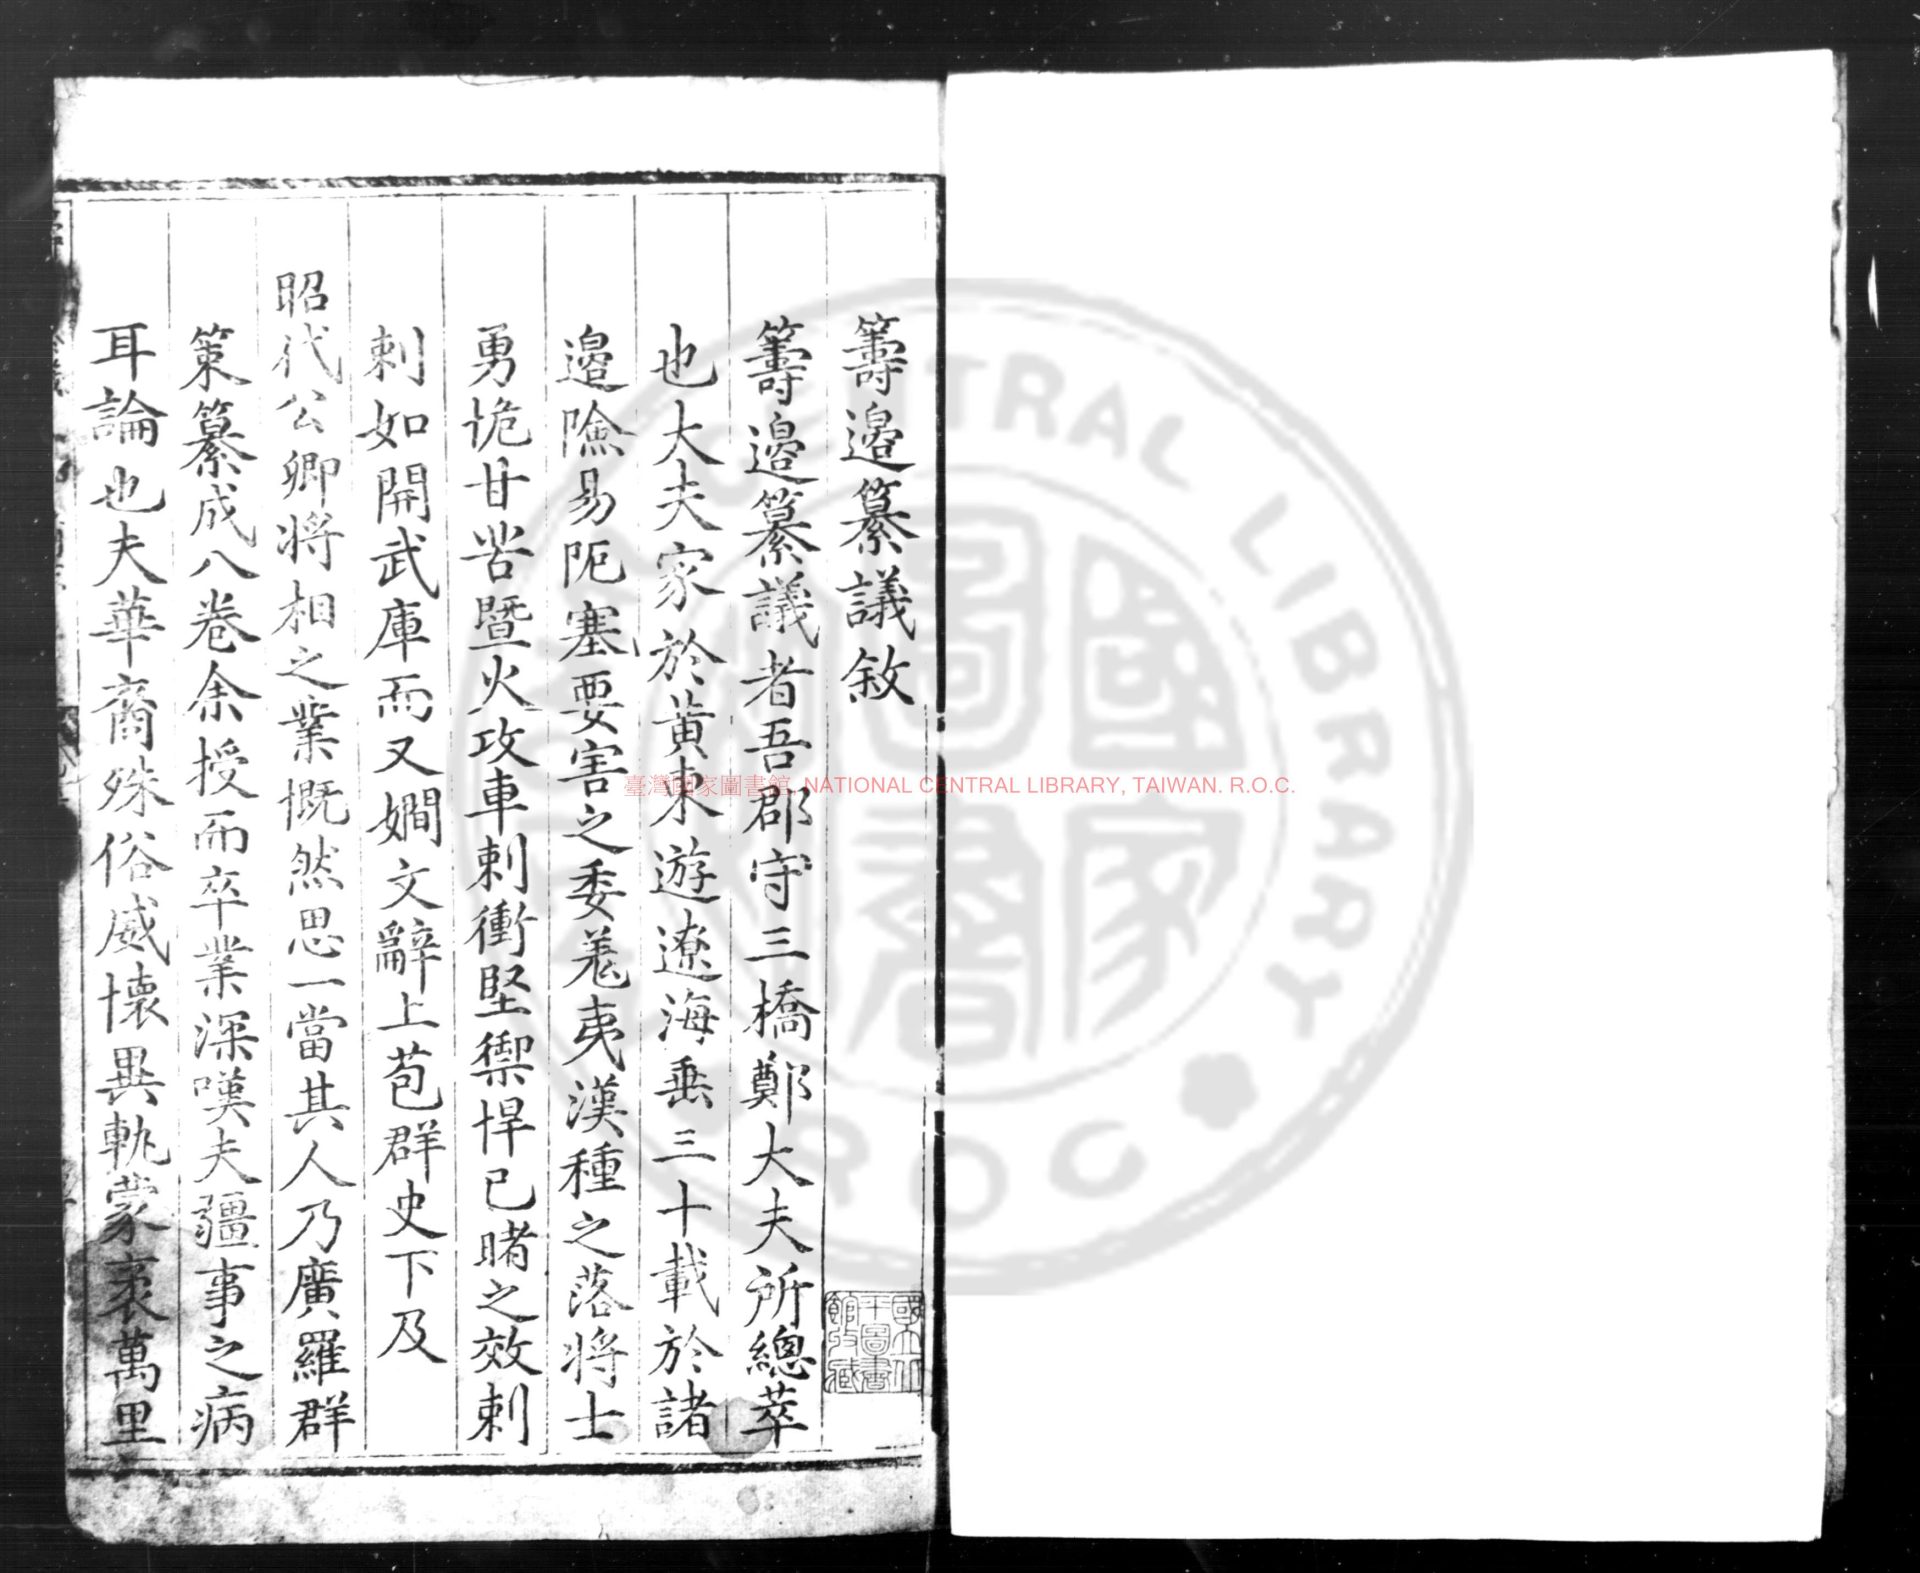 籌邊纂議敘
籌邊纂議者吾郡守三橋鄭大夫所總萃
也大夫家於黃東遊遼海垂三十載於諸
邊險易阨塞要害之委羌夷漢種之落將士
勇怯甘苦暨火攻車刺衝堅禦悍已睹之效剌
剌如開武庫而又嫺文辭上苞群史下及
昭代公卿將相之業慨然思一當其人乃廣羅群
策纂成八卷余授而卒業深嘆夫疆事之病
耳論也夫華裔殊俗威懷異軌蒙袤萬里
臺灣國家圖書館, NATIONAL CENTRAL LIBRARY, TAIWAN. R.O.C.
CENTRAL LIBRARY
ROC
國家圖書
國立北
平圖書
館收藏